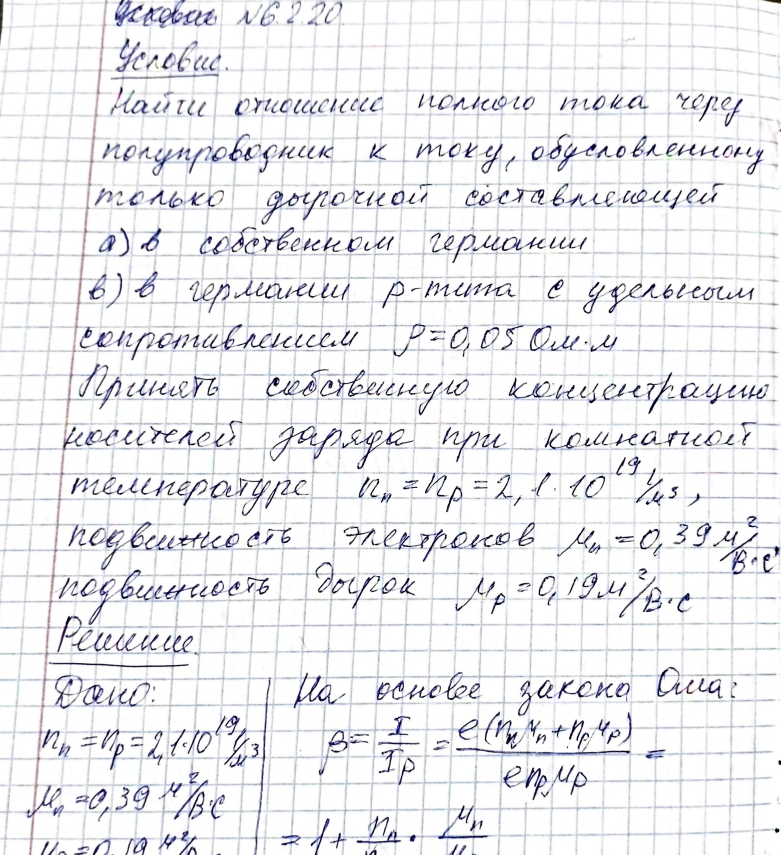 №6.2.20
Условие.
Найти отношение полного тока через
полупроводник к току, обусловленному
только дырочной составляющей
а) в собственном германии
в) в германии р-типа с удельным
сопротивлением ρ=0,05 Ом·м
Принять собственную концентрацию
носителей заряда при комнатной
температуре nₙ=nₚ=2,1·10¹⁹ 1/м³,
подвижность электронов μₙ=0,39 м²/В·с
подвижность дырок μₚ=0,19 м²/В·с
Решение.
Дано: На основе закона Ома:
nₙ=nₚ=2,1·10¹⁹ 1/м³ β= I/Iₚ = e(nₙμₙ+nₚμₚ)/enₚμₚ =
μₙ=0,39 м²/В·с
=0,19 м²/ =1+ nₙ/ · μₙ/